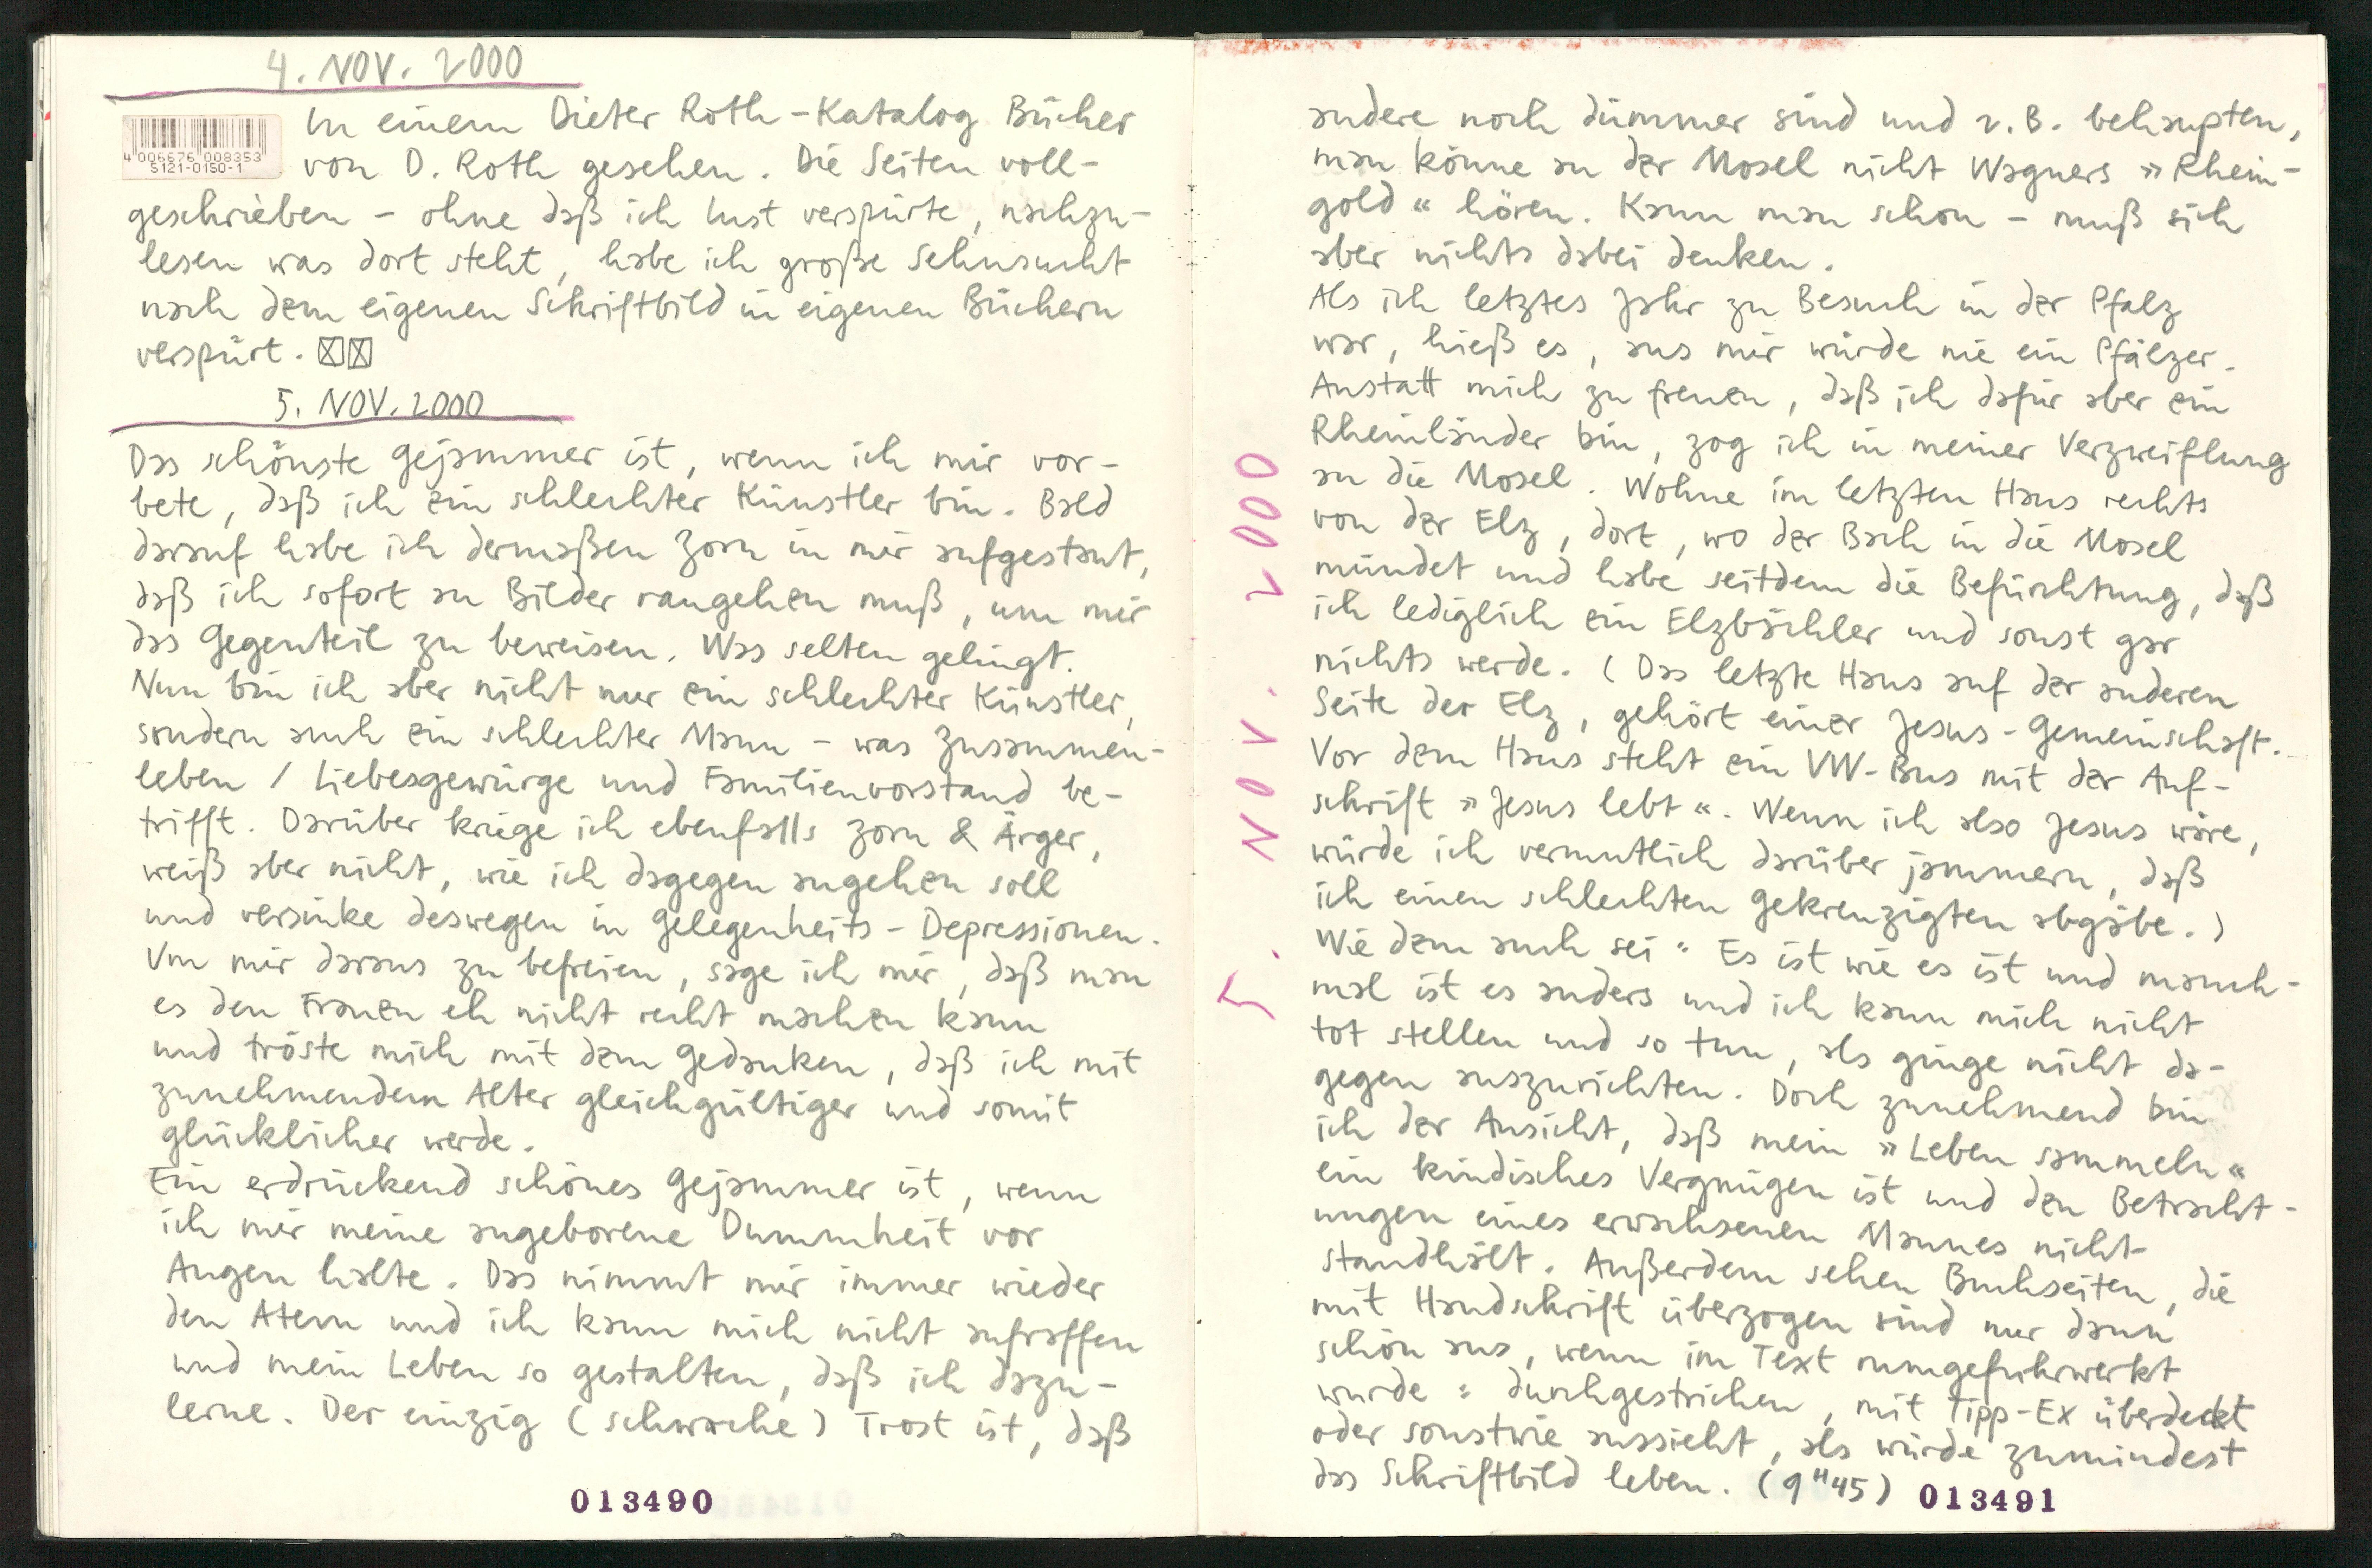 4. NOV. 2000
4 006676 008353
5121-0150-1
In einem Dieter Roth-Katalog Bücher
von D. Roth gesehen. Die Seiten voll-
geschrieben - ohne daß ich Lust verspürte, nachzu-
lesen was dort steht, habe ich große Sehnsucht
nach dem eigenen Schriftbild in eigenen Büchern
verspürt. ☒☒
5. NOV. 2000
Das schönste Gejammer ist, wenn ich mir vor-
bete, daß ich ein schlechter Künstler bin. Bald
darauf habe ich dermaßen Zorn in mir aufgestaut,
daß ich sofort an Bilder rangehen muß, um mir
das Gegenteil zu beweisen. Was selten gelingt.
Nun bin ich aber nicht nur ein schlechter Künstler,
sondern auch ein schlechter Mann - was Zusammen-
leben / Liebesgewürge und Familienvorstand be-
trifft. Darüber kriege ich ebenfalls Zorn & Ärger,
weiß aber nicht, wie ich dagegen angehen soll
und versinke deswegen in Gelegenheits-Depressionen.
Um mir daraus zu befreien, sage ich mir, daß man
es den Frauen eh nicht recht machen kann
und tröste mich mit dem Gedanken, daß ich mit
zunehmendem Alter gleichgültiger und somit
glücklicher werde.
Ein erdrückend schönes Gejammer ist, wenn
ich mir meine angeborene Dummheit vor
Augen halte. Das nimmt mir immer wieder
den Atem und ich kann mich nicht aufraffen
und mein Leben so gestalten, daß ich dazu-
lerne. Der einzig (schwache) Trost ist, daß
013490
5. NOV. 2000
andere noch dümmer sind und z.B. behaupten,
man könne an der Mosel nicht Wagners »Rhein-
gold« hören. Kann man schon - muß sich
aber nichts dabei denken.
Als ich letztes Jahr zu Besuch in der Pfalz
war, hieß es, aus mir würde nie ein Pfälzer.
Anstatt mich zu freuen, daß ich dafür aber ein
Rheinländer bin, zog ich in meiner Verzweiflung
an die Mosel. Wohne im letzten Haus rechts
von der Elz, dort, wo der Bach in die Mosel
mündet und habe seitdem die Befürchtung, daß
ich lediglich ein Elzbächler und sonst gar
nichts werde. (Das letzte Haus auf der anderen
Seite der Elz, gehört einer Jesus-Gemeinschaft.
Vor dem Haus steht ein VW-Bus mit der Auf-
schrift »Jesus lebt«. Wenn ich also Jesus wäre,
würde ich vermutlich darüber jammern, daß
ich einen schlechten Gekreuzigten abgäbe.)
Wie dem auch sei: Es ist wie es ist und manch-
mal ist es anders und ich kann mich nicht
tot stellen und so tun, als ginge nicht da-
gegen auszurichten. Doch zunehmend bin
ich der Ansicht, daß mein »Leben sammeln«
ein kindisches Vergnügen ist und den Betracht-
ungen eines erwachsenen Mannes nicht
standhält. Außerdem sehen Buchseiten, die
mit Handschrift überzogen sind nur dann
schön aus, wenn im Text rumgefuhrwerkt
wurde: durchgestrichen, mit Tipp-Ex überdeckt
oder sonstwie aussieht, als würde zumindest
das Schriftbild leben. (9H45)
013491